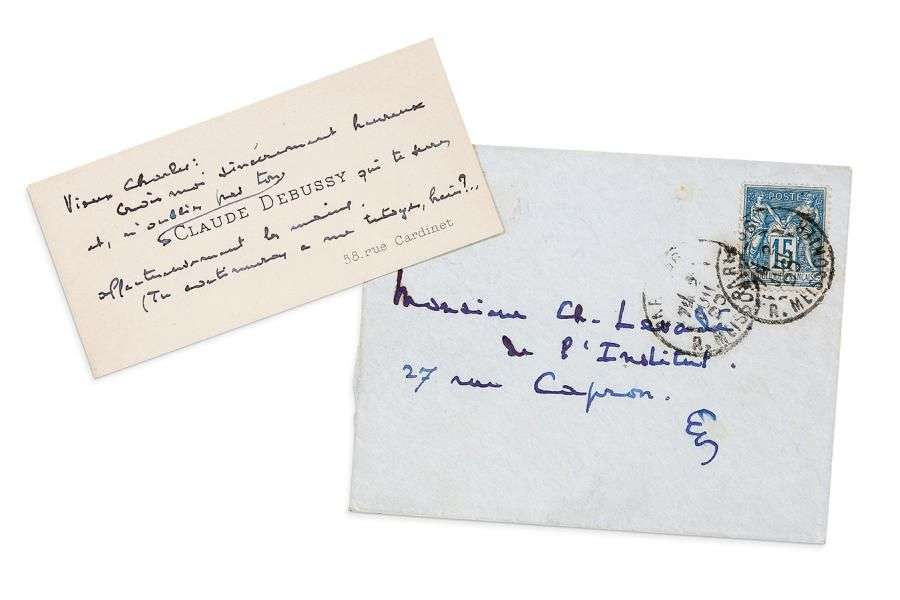 Vieux Charles:
Crois moi sincèrement heureux
et, n'oublies pas ton
CLAUDE DEBUSSY qui te serre
affectueusement les mains.
(Tu continueras a me tutoyer, hein?...
58, rue Cardinet
POSTE
15
R. MEISSONIER
R. MEISSONIER
Monsieur Ch. Levadé
de l'Institut.
27 rue Capron.
EV